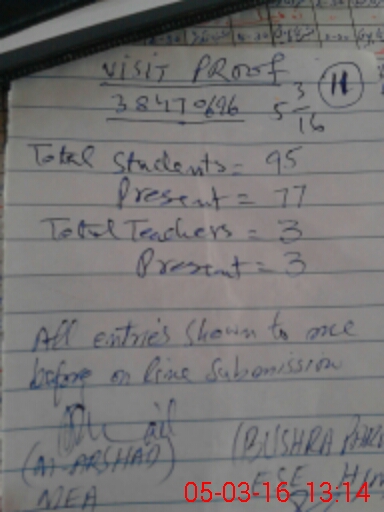 VISIT PROOF
38470696 5 3 16 11
Total Students = 95
Present = 77
Total Teachers = 3
Present = 3
All entries shown to me
before on line Submission
(M. ARSHAD) (BUSHRA
MEA ESE
05-03-16 13:14